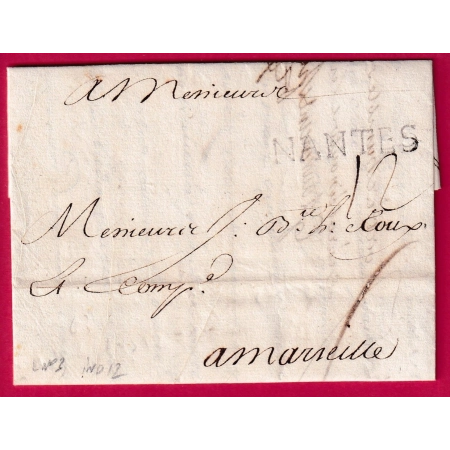 A Messieurs
NANTES
12
Messieurs J: Bte. h: Roux
& Compe.
a Marseille
IND 12